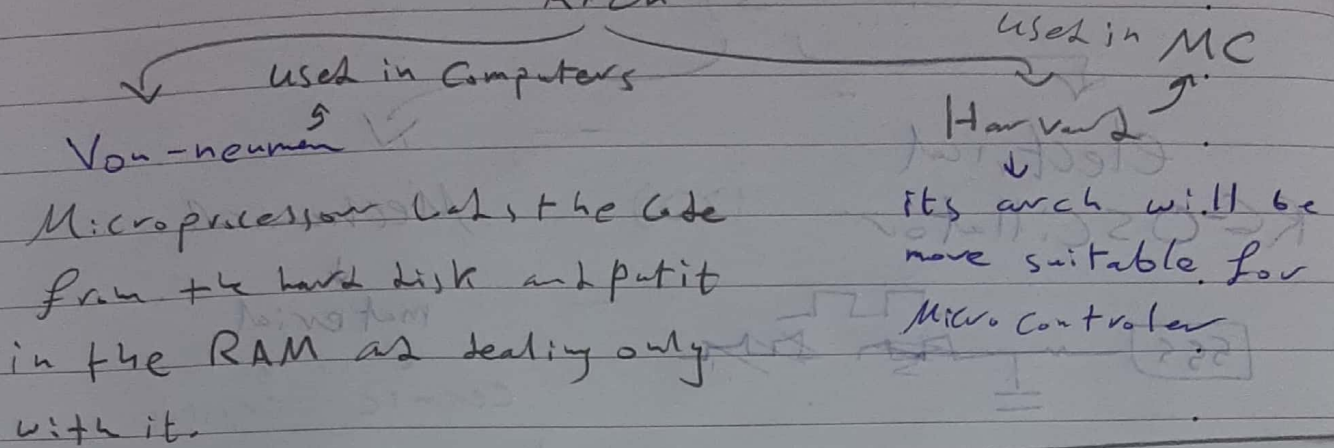 Arch
used in MC
used in Computers
Von-neuman
Harvard
Microprocessor Lods the Code
from the hard disk and put it
in the RAM as dealing only
with it.
its arch will be
more suitable for
Micro controler